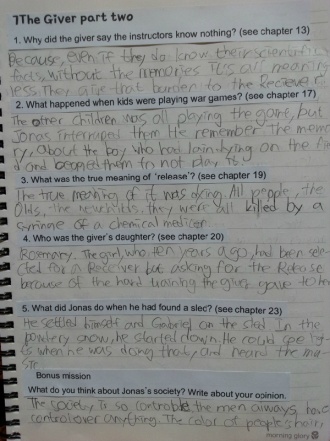 7The Giver part two
1. Why did the giver say the instructors know nothing? (see chapter 13)
Because, even if they do know their scientific
facts, without the memories It's all meaning
less. They give that burden to the Reciever
2. What happened when kids were playing war games? (see chapter 17)
The other children was all playing the game, but
Jonas interruped them He remember The memo
ry, about the boy who had lain dying on the fie
d and them to not play it.
3. What was the true meaning of 'release'? (see chapter 19)
The true meaning of it was dying. All people, the
Olds, the newchilds, they were all killed by a
syringe of a chemical medicen.
4. Who was the giver's daughter? (see chapter 20)
Rosemary. The girl, who, ten years ago, had been sele-
cted for a Receiver but asking for the Release
because of the hard training the giver gave to her
5. What did Jonas do when he had found a slec? (see chapter 23)
He settled himself and Gabriel on the sled In the
powdery snow, he started down. He could see lig-
ts when he was doing that, and heard the mu-
sic.
Bonus mission
What do you think about Jonas's society? Write about your opinion.
The society is so controlable the men always, have
control over anything. The color of people's hairs,
morning glory